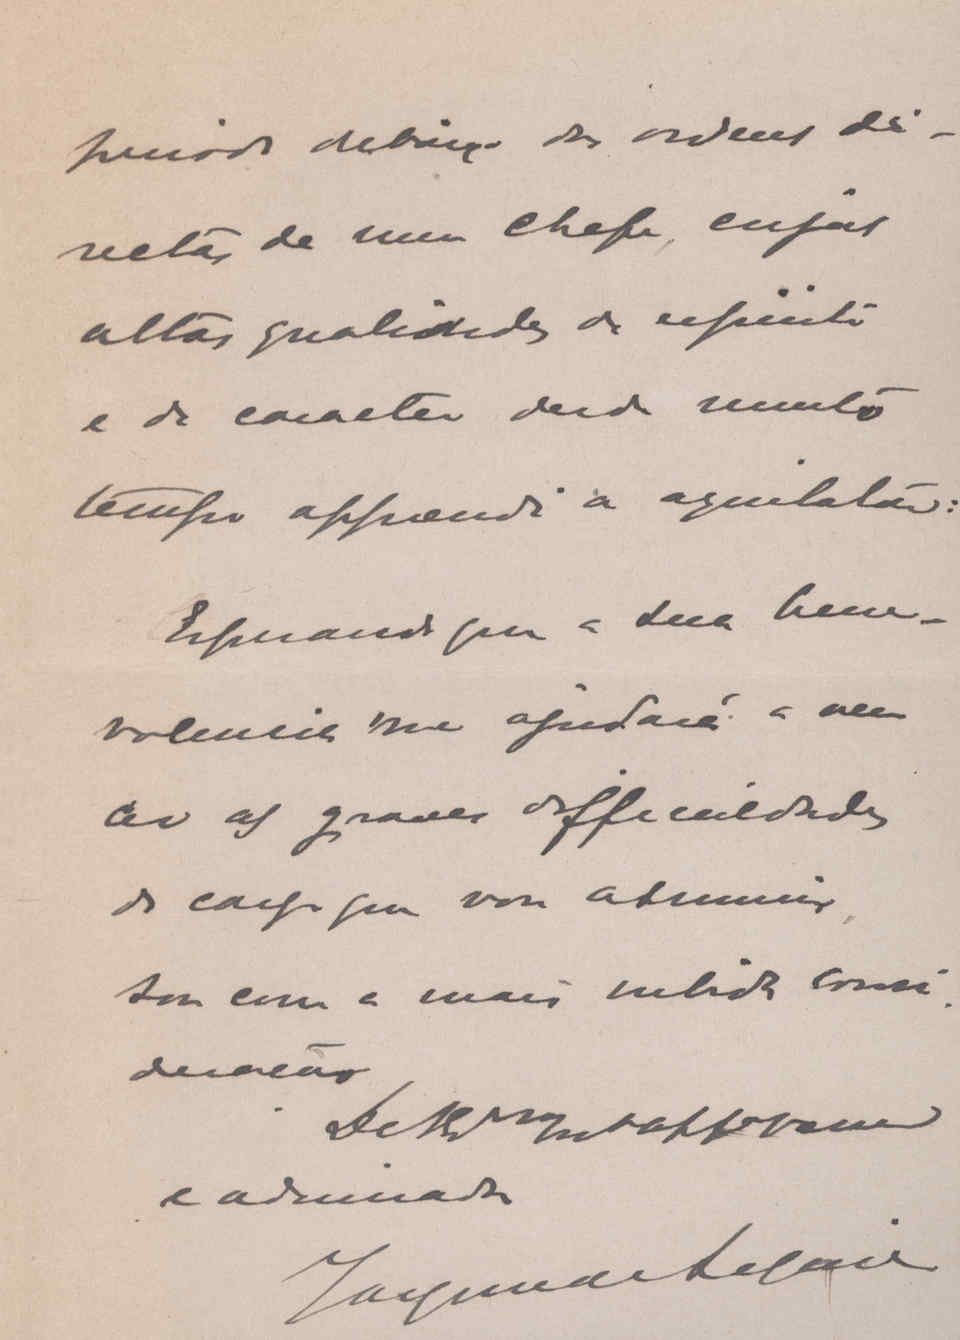 periodo debaixo das ordens di-
rectas de um chefe, cujas
altas qualidades de espirito
e de caracter desde muito
tempo apprendi a aquilatar.
Esperando que a sua bene-
volencia me ajudará a ven
cer as graves difficuldades
do cargo que vou assumir,
sou com a mais subida consi.
deração
De V.
e admirador